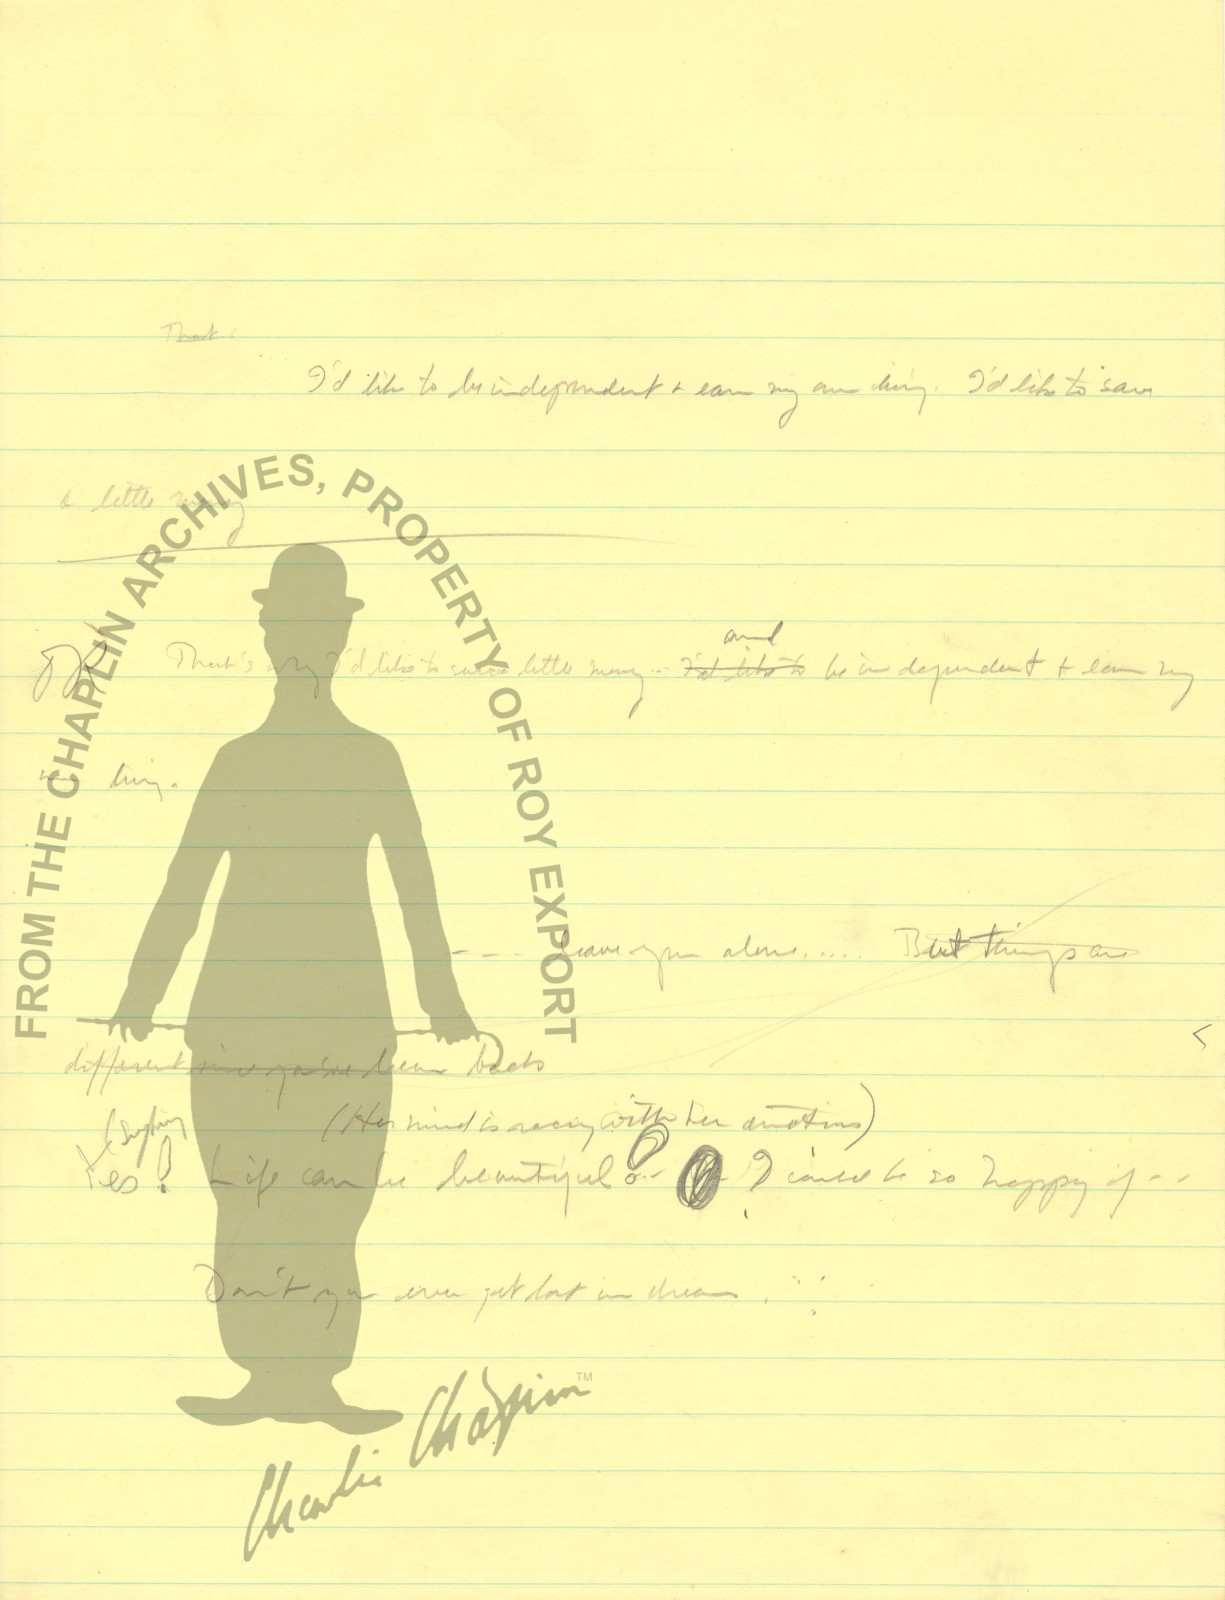 That
I'd like to be independent & earn my own living. I'd like to save
a little money
That's why I'd like to save a little money... and I'd like to be independent & earn my
own living.
---- leave you alone..... But things are
different since you've been back
(Her mind is racing with her emotions)
Yes! Life can be beautiful I could be so happy if --
Don't you ever get lost in dreams
FROM THE CHAPLIN ARCHIVES, PROPERTY OF ROY EXPORT
Charlie Chaplin TM